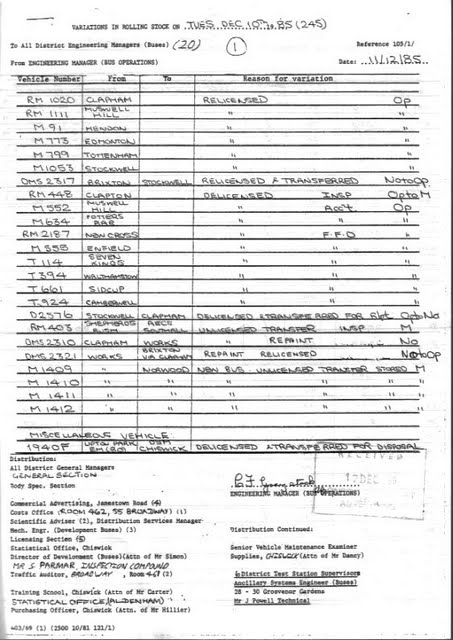 VARIATIONS IN ROLLING STOCK ON TUES DEC 10TH 85 (245)
To All District Engineering Managers (Buses) (20) 1 Reference 109/1/
From ENGINEERING MANAGER (BUS OPERATIONS) Date: 11/12/85.
Vehicle Number From To Reason for variation
RM 1020 CLAPHAM RELICENSED Op
RM 1111 MUSWELL HILL " "
M 91 HENDON " "
M 773 EDMONTON " "
M 799 TOTTENHAM " "
M1053 STOCKWELL " "
DMS 2317 BRIXTON STOCKWELL RELICENSED & TRANSFERRED No to Op
RM 448 CLAPTON DELICENSED INSP Op to M
M 552 MUSWELL HILL " Acc't Op
M 634 POTTERS BAR " " "
RM 2187 NEW CROSS " F.F.O "
M 558 ENFIELD " " "
T 114 SEVEN KINGS " " "
T 394 WALTHAMSTOW " " "
T 661 SIDCUP " " "
T 924 CAMBERWELL " " "
D2576 STOCKWELL CLAPHAM DELICENSED & TRANSFERRED FOR Rpt Op to No
RM 403 SHEPHERDS BUSH AECS SOUTHALL UNLICENSED TRANSFER INSP M
DMS 2310 CLAPHAM WORKS " REPAINT No
DMS 2321 WORKS BRIXTON VIA CLAPHAM REPAINT RELICENSED No to Op
M 1409 " NORWOOD NEW BUS UNLICENSED TRANSFER STORED M
M 1410 " " " " " "
M 1411 " " " " " "
M 1412 " " " " " "
MISCELLANEOUS VEHICLE
1940F UPTON PARK CHISWICK DELICENSED & TRANSFERRED FOR DISPOSAL
Distribution:
All District General Managers
GENERAL SECTION
Body Spec. Section
RECEIVED
17 DEC
ENGINEERING MANAGER (BUS OPERATIONS)
Commercial Advertising, Jamestown Road (4)
Costs Office (ROOM 462, 55 BROADWAY) (1)
Scientific Adviser (2), Distribution Services Manager
Mech. Engr. (Development Buses) (3)
Licensing Section (5)
Statistical Office, Chiswick
Director of Development (Buses)(Attn of Mr Simon)
MR S PARMAR, INSPECTION COMPOUND
Traffic Auditor, BROADWAY, Room 467 (2)
Training School, Chiswick (Attn of Mr Carter)
STATISTICAL OFFICE (ALDENHAM)
Purchasing Officer, Chiswick (Attn. of Mr Hillier)
Distribution Continued:
Senior Vehicle Maintenance Examiner
Supplies, CHISWICK (Attn of Mr Dancy)
6 District Test Station Supervisors
Ancillary Systems Engineer (Buses)
28 - 30 Grosvenor Gardens
Mr J Powell Technical
403/69 (1) (2500 10/81 121/1)